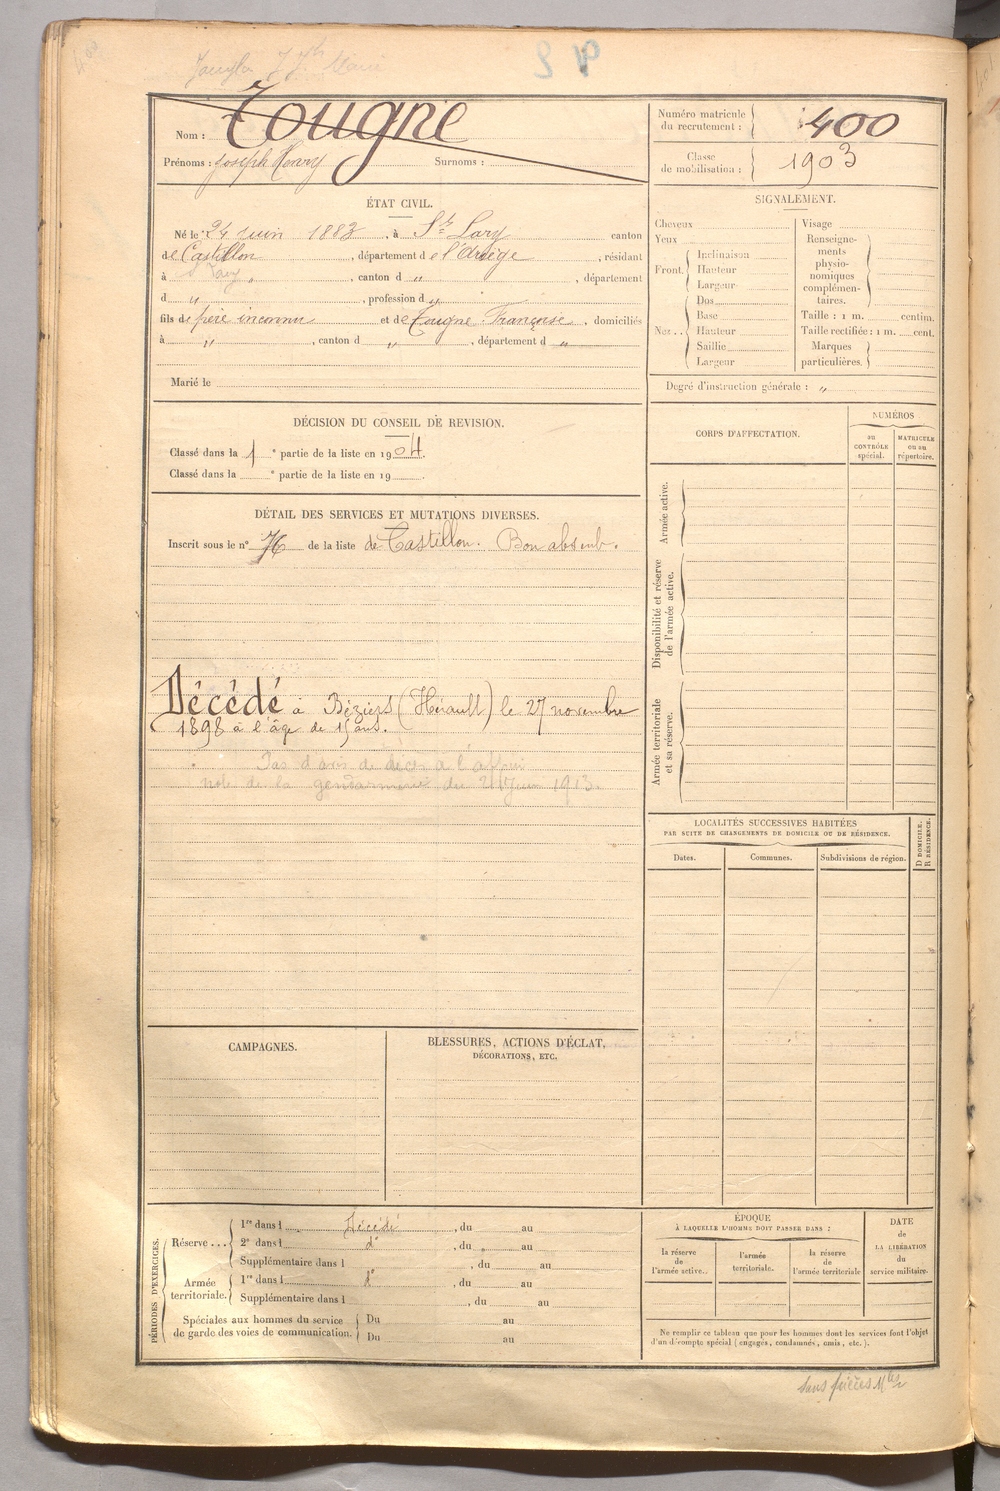 Nom : Tougne
Prénoms : Joseph Henry Surnoms :
Numéro matricule du recrutement : 400
Classe de mobilisation : 1903
ÉTAT CIVIL.
Né le 24 juin 1883, à St Lary canton
de Castillon, département de l'Ariège, résidant
à St Lary, canton d ", département
d ", profession d "
fils de père inconnu et de Tougne Françoise, domiciliés
à ", canton d ", département d "
Marié le
SIGNALEMENT.
Cheveux
Yeux
Front. Inclinaison
Hauteur
Largeur
Nez.. Dos
Base
Hauteur
Saillie
Largeur
Visage
Renseignements physionomiques complémentaires.
Taille : 1 m. centim.
Taille rectifiée : 1 m. cent.
Marques particulières.
Degré d'instruction générale : "
DÉCISION DU CONSEIL DE REVISION.
Classé dans la 1 e partie de la liste en 1904.
Classé dans la e partie de la liste en 19 .
CORPS D'AFFECTATION.
NUMÉROS
au CONTRÔLE spécial.
MATRICULE ou au répertoire.
Armée active.
Disponibilité et réserve de l'armée active.
Armée territoriale et sa réserve.
DÉTAIL DES SERVICES ET MUTATIONS DIVERSES.
Inscrit sous le n° 76 de la liste de Castillon. Bon absent.
Décédé à Béziers (Hérault) le 27 novembre
1898 à l'âge de 15 ans.
Pas d'avis de décès à l'appui
note de la gendarmerie du juin 1913.
LOCALITÉS SUCCESSIVES HABITÉES
PAR SUITE DE CHANGEMENTS DE DOMICILE OU DE RÉSIDENCE.
Dates. Communes. Subdivisions de région. D DOMICILE. R RÉSIDENCE.
CAMPAGNES.
BLESSURES, ACTIONS D'ÉCLAT,
DÉCORATIONS, ETC.
PÉRIODES D'EXERCICES.
Réserve ... 1re dans l Décédé, du au
2e dans l d°, du au
Supplémentaire dans l , du au
Armée territoriale. 1re dans l d°, du au
Supplémentaire dans l , du au
Spéciales aux hommes du service de garde des voies de communication. Du au
Du au
ÉPOQUE
À LAQUELLE L'HOMME DOIT PASSER DANS :
la réserve de l'armée active..
l'armée territoriale.
la réserve de l'armée territoriale
DATE de LA LIBÉRATION du service militaire.
Ne remplir ce tableau que pour les hommes dont les services font l'objet
d'un décompte spécial (engagés, condamnés, omis, etc.).
Sans pièces Mles